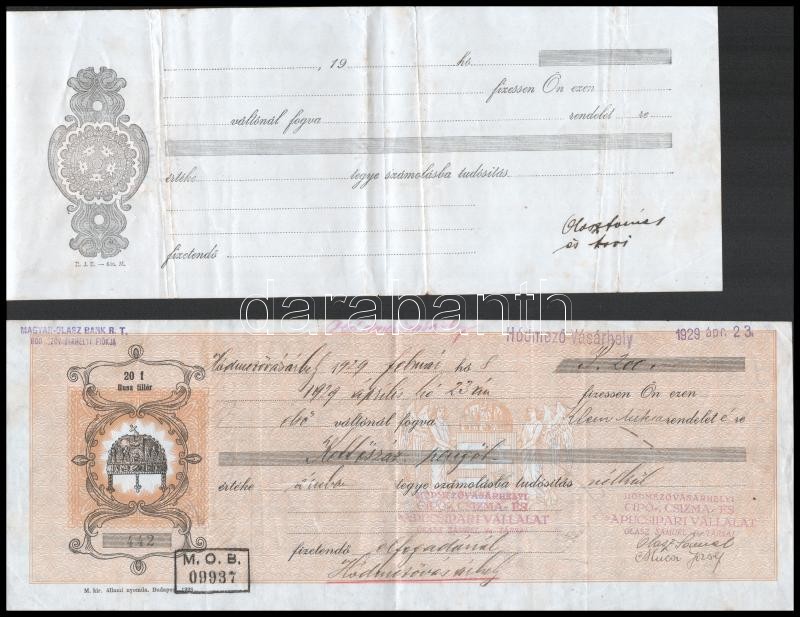 , 19 hó
fizessen Ön ezen
váltónál fogva rendelet re
értéke legye számolásba tudósitás
fizetendő
Olasz Sámuel
és
darabanth
MAGYAR-OLASZ BANK R. T.
FIÓKJA
Hódmező-Vásárhely 1929 ápr. 23.
20 f
Husz fillér
Hódmezővásárhely 1929 február hó 8 P. 200
1929 április hó 23 án fizessen Ön ezen
első váltónál fogva rendelet é re
Kettőszáz pengőt
értéke legye számolásba tudósitás nélkül
HÓDMEZŐVÁSÁRHELYI HÓDMEZŐVÁSÁRHELYI
CIPŐ-, CSIZMA- ÉS CIPŐ-, CSIZMA- ÉS
PAPUCSIPARI VÁLLALAT PAPUCSIPARI VÁLLALAT
OLASZ SÁMUEL OLASZ SÁMUEL
442
fizetendő elfogadónál
Olasz Sámuel
Hódmezővásárhely
M. O. B.
09937
M. kir. állami nyomda. Budapest, 1928